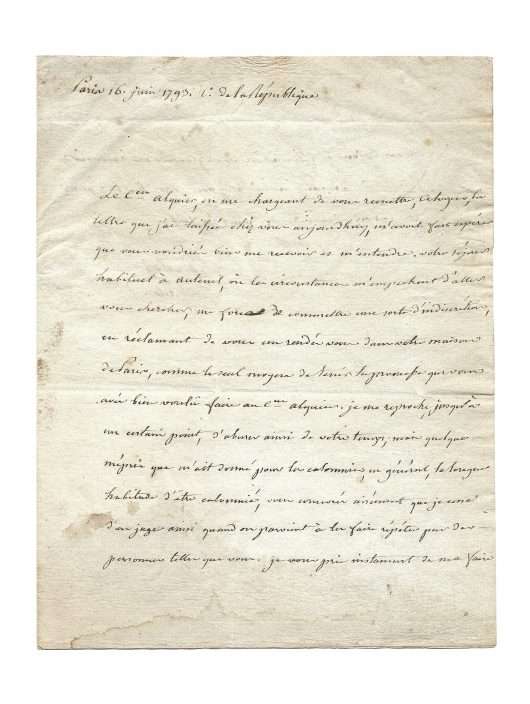 Paris 16. juin 1793. l'. de la République
Le C.en alquier, en me chargeant de vous remettre, Citoyen, la
lettre que j'ai laissée chez vous aujourdhuy, m'avoit fait espérer
que vous voudriés bien me recevoir et m'entendre. votre séjour
habituel à auteuil, où les circonstances m'empechent d'aller
vous chercher, me force de commettre une sorte d'indiscrétion,
en réclamant de vous un rendés vous dans votre maison
de Paris, comme le seul moyen de tenir la promesse que vous
avés bien voulu faire au C.en alquier. je me reproche, jusqu'à
un certain point, d'abuser ainsi de votre temps, mais quelque
mépris que m'ait donné pour les calomnies, en général, la longue
habitude d'être calomnié, vous concevés aisément que je
d'en juge ainsi quand on parvient à les faire répéter par des
personnes telles que vous. je vous prie instament de me faire